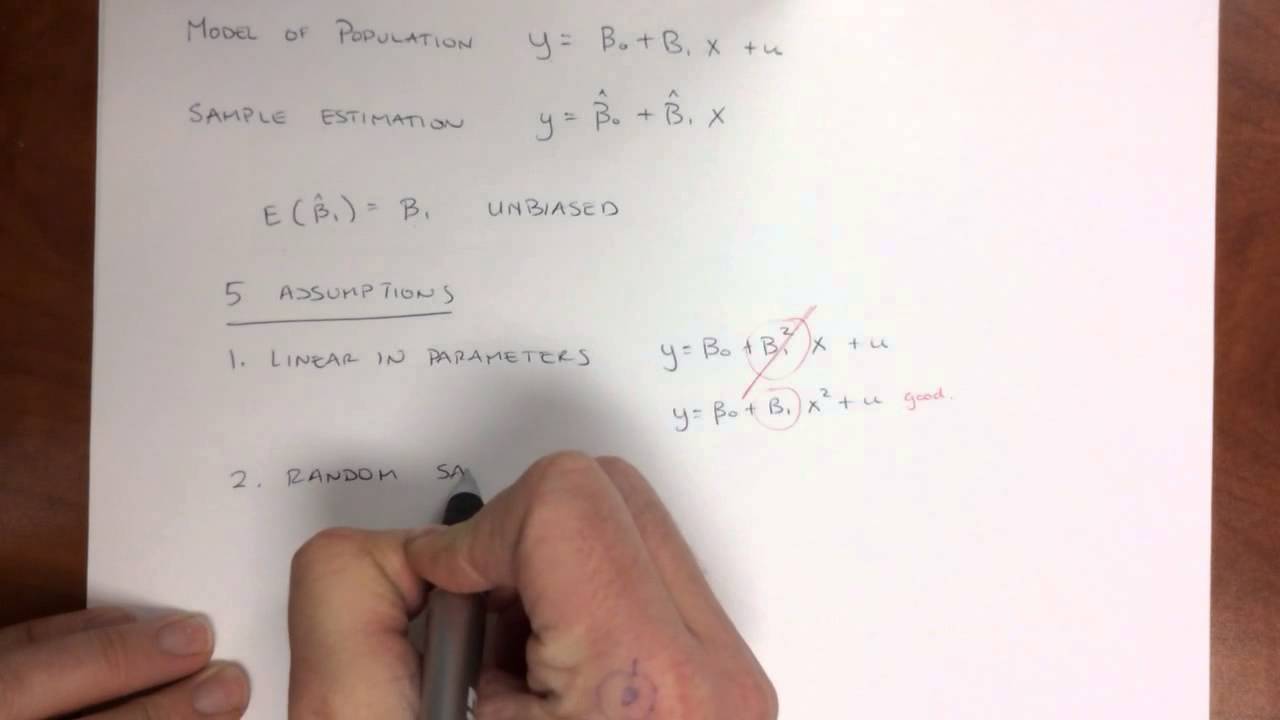 MODEL OF POPULATION y = B₀ + B₁ x + u
SAMPLE ESTIMATION y = B̂₀ + B̂₁ x
E(β̂₁) = B₁ UNBIASED
5 ASSUMPTIONS
1. LINEAR IN PARAMETERS y = B₀ + B₁² x + u
y = β₀ + B₁ x² + u good.
2. RANDOM SA